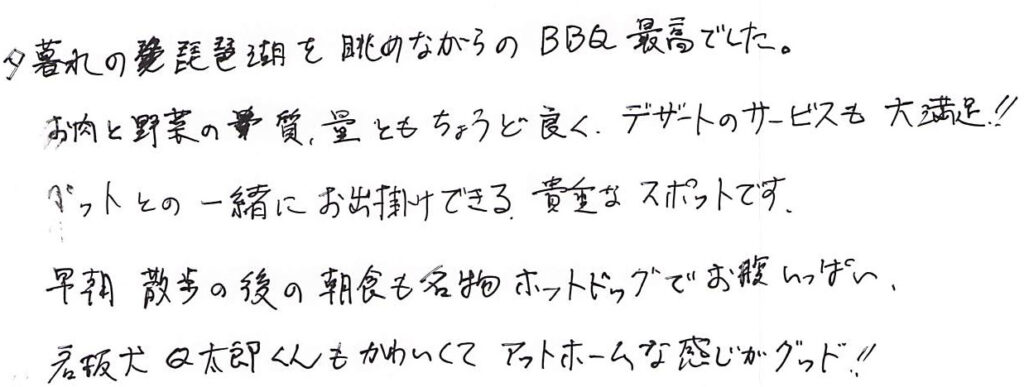 夕暮れの琵琶湖を眺めながらのBBQ最高でした。
お肉と野菜の質、量ともちょうど良く、デザートのサービスも大満足!!
ペットとの一緒にお出掛けできる、貴重なスポットです、
早朝 散歩の後の朝食も名物ホットドッグでお腹いっぱい、
看板犬Q太郎くんもかわいくてアットホームな感じがグッド!!